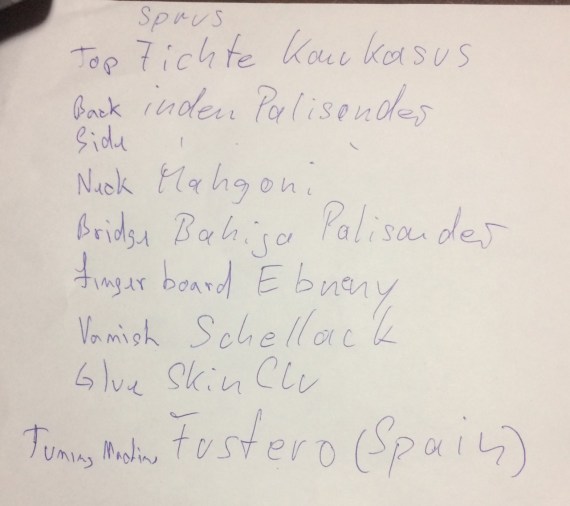 Sprus
Top Fichte Kaukasus
Back inden Palisander
Side
Neck Mahgoni
Bridge Bahija Palisander
Finger board Ebneny
Varnish Schellack
Glue Skin Clu
Tuning Fustero (Spain)